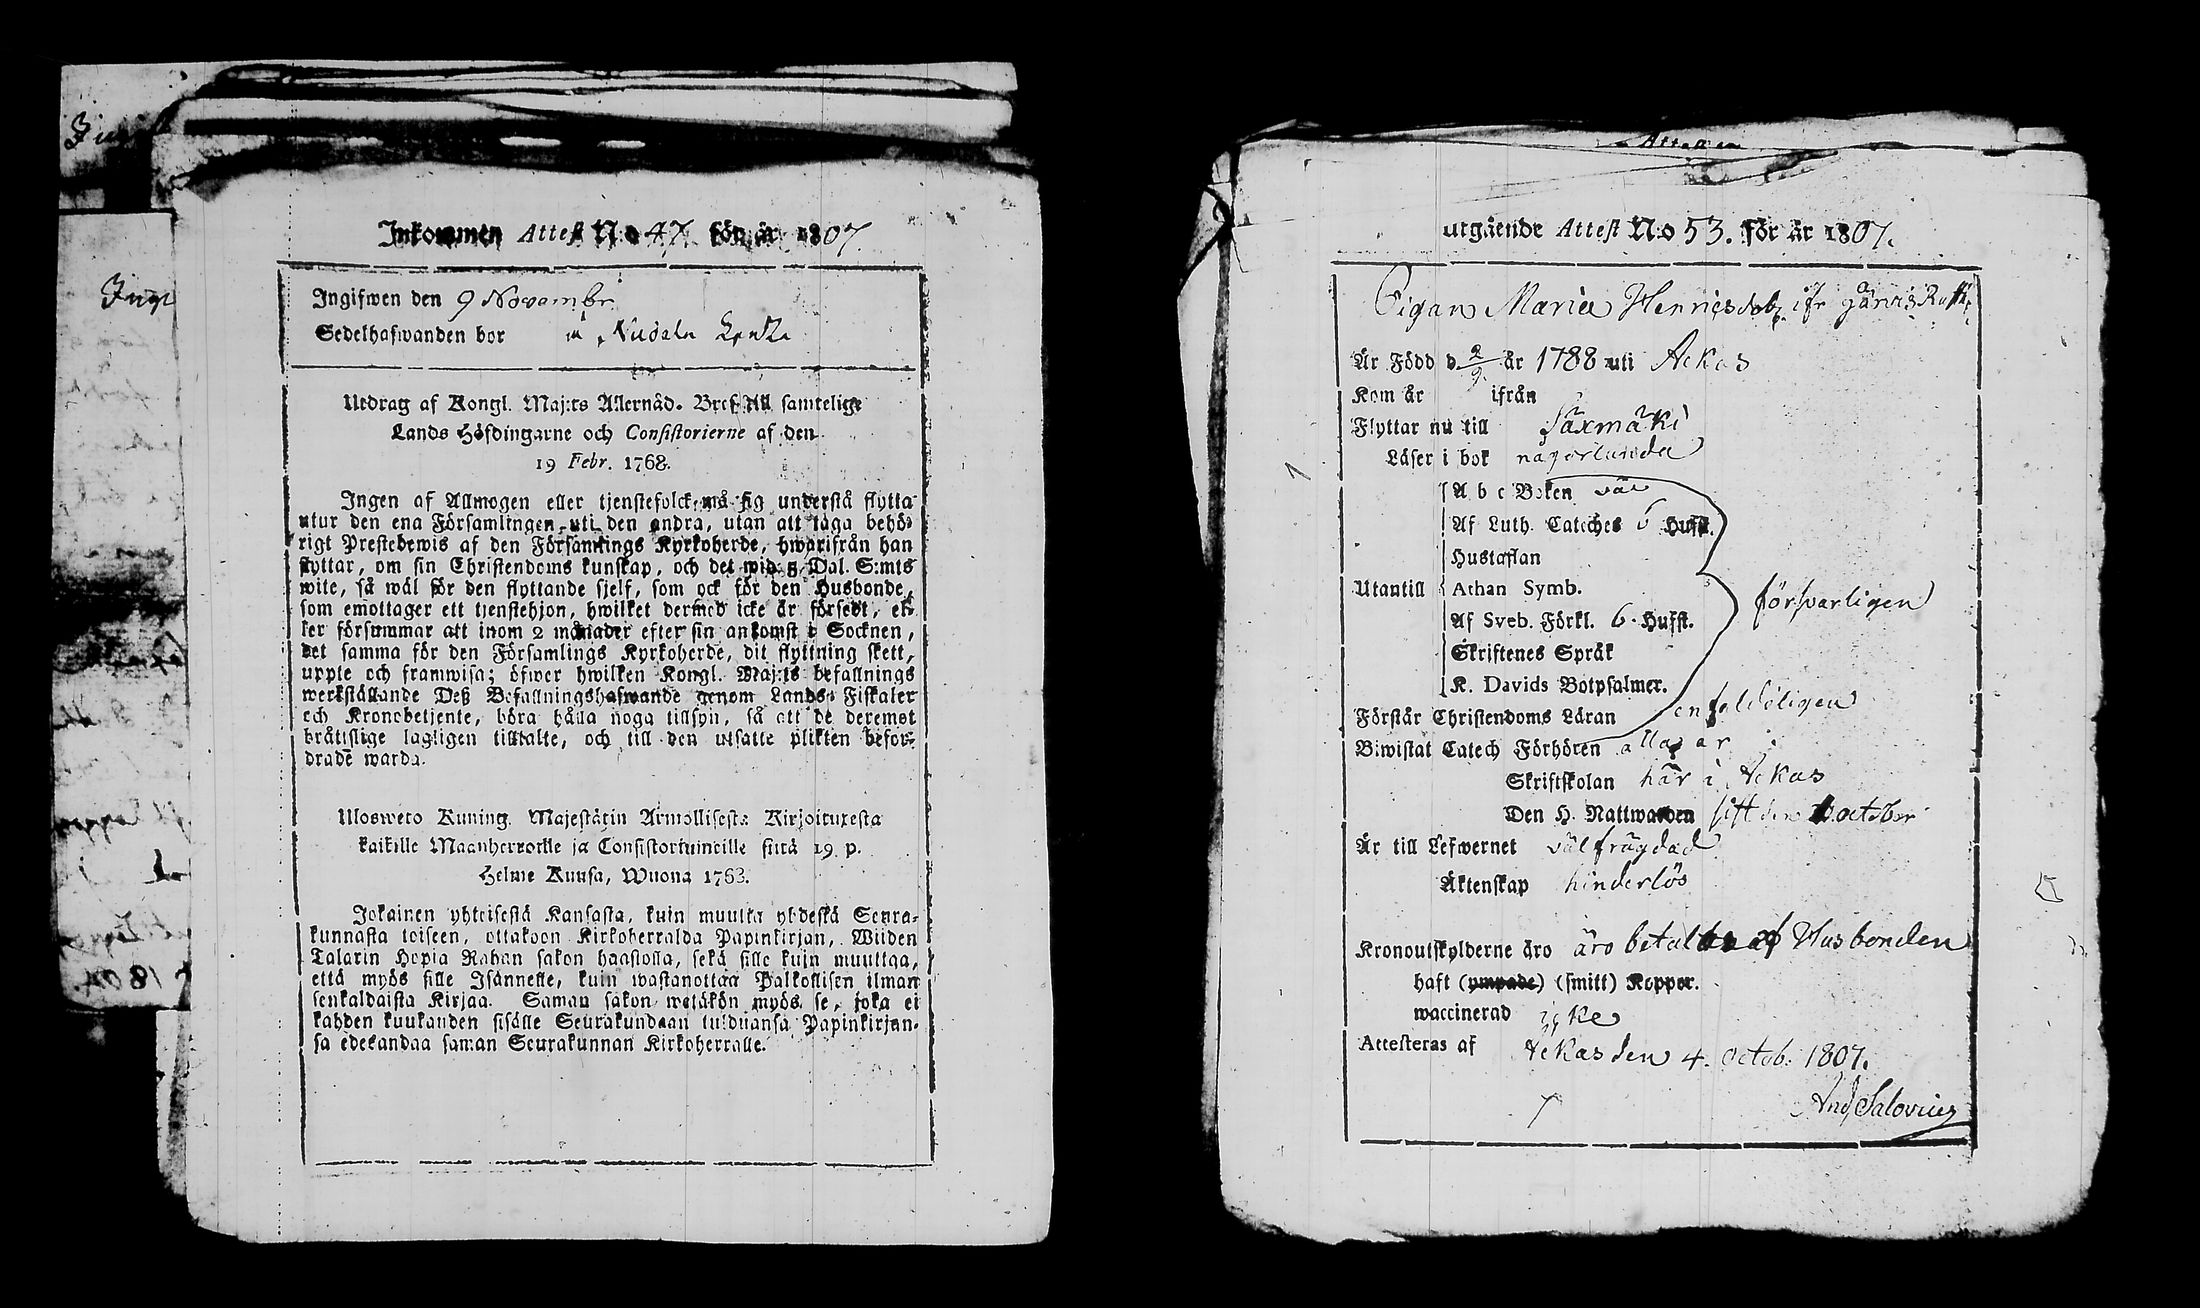 Inkommen Attest No 47 för år 1807
Ingifwen den 9 Novembr
Sedelhafwanden bor
Utdrag af Kongl. Maj:ts Allernåd. Bref till samtelige
Lands Höfdingarne och Consistorierne af den
19 Febr. 1768.
Ingen af Allmogen eller tjenstefolck må sig understå flytta
utur den ena Församlingen uti den andra, utan att taga behö-
rigt Prestebewis af den Församlings Kyrkoherde, hwarifrån han
flyttar, om sin Christendoms kunskap, och det wid 5 Dal. S:mts
wite, så wäl för den flyttande sjelf, som ock för den Husbonde,
som emottager ett tjenstehjon, hwilket dermed icke är försedt, el-
ler försummar att inom 2 månader efter sin ankomst i Socknen,
det samma för den Församlings Kyrkoherde, dit flyttning skett,
uppte och framwisa; öfwer hwilken Kongl. Maj:ts befallnings
werkställande Deß Befallningshafwande genom Lands-Fiskaler
och Kronobetjente, böra hålla noga tillsyn, så att de deremot
bråttslige lagligen tilltalte, och till den utsatte plikten befor-
drade warda.
Uloswero Kuning. Majestätin Armollisesta Kirjoituxesta
kaikille Maanherroille ja Consistoriumeille siitä 19 p.
Helme Kuusa, Wuona 1763.
Jokainen yhteisestä Kansasta, kuin muutta yhdestä Seura-
kunnasta toiseen, ottakoon Kirkoherralda Papinkirjan, Wiiden
Talarin Hopia Rahan sakon haastolla, sekä sille kuin muuttaa,
että myös sille Isännelle, kuin wastanottaa Palkollisen ilman
senkaldaista Kirjaa. Saman sakon wetäkön myös se, joka ei
kahden kuukauden sisälle Seurakundaan tulduansa Papinkirjan-
sa edesandaa saman Seurakunnan Kirkoherralle.
utgående Attest No 53. För år 1807.
Pigan Maria Henricsdotr ifr
Är Född d. 2/9 år 1788 uti Ackas
Kom år ifrån
Flyttar nu till Säxmäki
Läser i bok någorlunda
A b c Boken väl
Af Luth. Cateches 6 Hufst.
Hustaflan
Utantill Athan Symb. försvarligen
Af Sveb. Förkl. 6. Hufst.
Skriftenes Språk
K. Davids Botpsalmer.
Förstår Christendoms Läran enfaldeligen
Biwistat Catech Förhören alla år
Skriftskolan här i Ackas
Den H. Nattwarden sist den october
Är till Lefwernet välfrägdad
Äktenskap hinderlös
Kronoutskylderne äro äro betalte af Husbonden
haft (ympade) (smitt) Koppor.
waccinerad icke
Attesteras af Ackas den 4. octob. 1807.
And Salovius